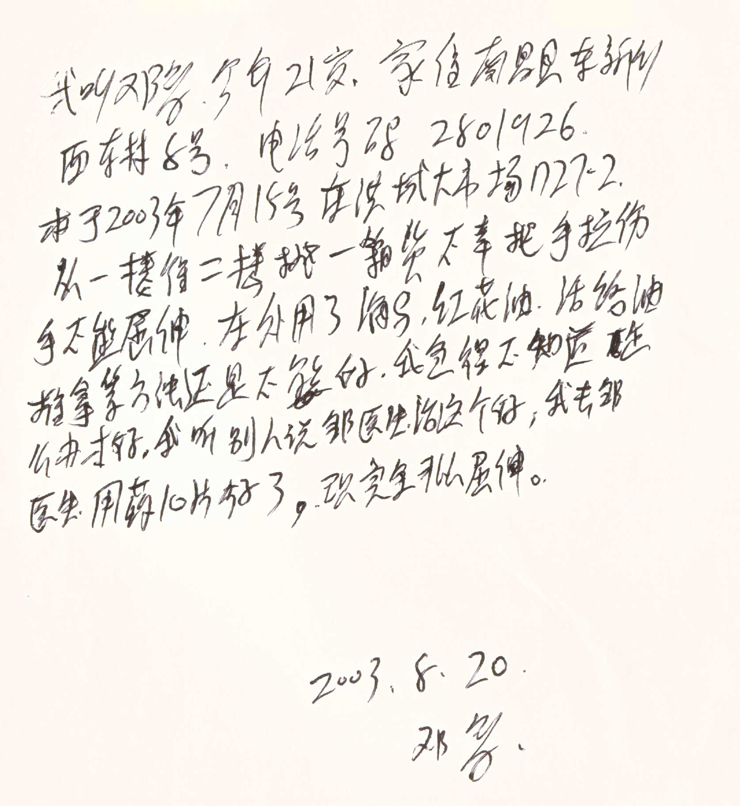 我叫邓 今年21岁. 家住南昌县东新乡
西东村8号. 电话号码 2801926.
本于2003年7月15号在洪城大市场D27-2.
从一楼往二楼搬一箱货不幸把手拉伤
手不能屈伸. 在外用了 红花油. 活络油
推拿等方法还是不能好. 我急得不知道
么办才好. 我听别人说邹医生治这个好, 我去邹
医生用药10片好了。现完全可以屈伸。
2003. 8. 20.
邓